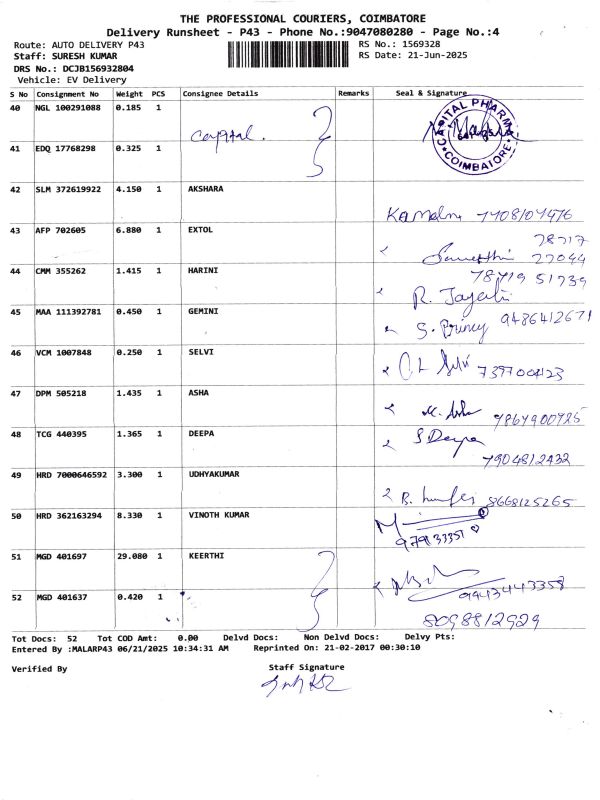 THE PROFESSIONAL COURIERS, COIMBATORE
Delivery Runsheet - P43 - Phone No.:9047080280 - Page No.:4
Route: AUTO DELIVERY P43 RS No.: 1569328
Staff: SURESH KUMAR RS Date: 21-Jun-2025
DRS No.: DCJB156932804
Vehicle: EV Delivery
S No Consignment No Weight PCS Consignee Details Remarks Seal & Signature
40 NGL 100291088 0.185 1
Capital. CAPITAL PHARMA COIMBATORE
41 EDQ 17768298 0.325 1
42 SLM 372619922 4.150 1 AKSHARA
Kamalm 7708107476
43 AFP 702605 6.880 1 EXTOL
78717
27044
44 CMM 355262 1.415 1 HARINI
78719 51739
R. Jayanti
45 MAA 111392781 0.450 1 GEMINI
S. Princy 9486412671
46 VCM 1007848 0.250 1 SELVI
Selvi 7397004123
47 DPM 505218 1.435 1 ASHA
M. Asha 9867900925
48 TCG 440395 1.365 1 DEEPA
S Deepa
7904812432
49 HRD 7000646592 3.300 1 UDHYAKUMAR
8668125265
50 HRD 362163294 8.330 1 VINOTH KUMAR
979133351
51 MGD 401697 29.080 1 KEERTHI
9943443358
52 MGD 401637 0.420 1
8098812929
Tot Docs: 52 Tot COD Amt: 0.00 Delvd Docs: Non Delvd Docs: Delvy Pts:
Entered By :MALARP43 06/21/2025 10:34:31 AM Reprinted On: 21-02-2017 00:30:10
Verified By Staff Signature